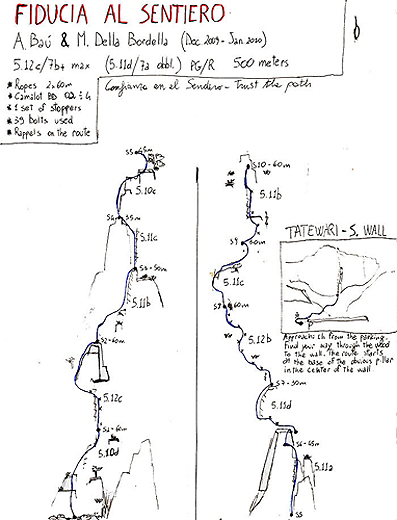 FIDUCIA AL SENTIERO
A. Baú & M. Della Bordella (Dec 2009 - Jan 2010)
5.12c/7b+ max (5.11d/7a obbl.) PG/R 500 meters
* Ropes 2x60m
* Camalot BD
* 1 set of stoppers
* 39 bolts used
* Rappels on the route
Confianza en el Sendero - Trust the path
S5 45m
5.10c
S4 55m
5.11c
S3 - 50m
5.11b
S2 - 60m
5.12c
S1 - 60m
5.10d
S10 - 60m
5.11b
S9 60m
5.11c
60m
5.12b
S7 - 50m
5.11d
S6 - 45m
5.11a
S5
TATEWARI - S. WALL
Approach: ch from the parking.
Find your way through the wood
to the wall. The route starts
at the base of the obvious pillar
in the center of the wall